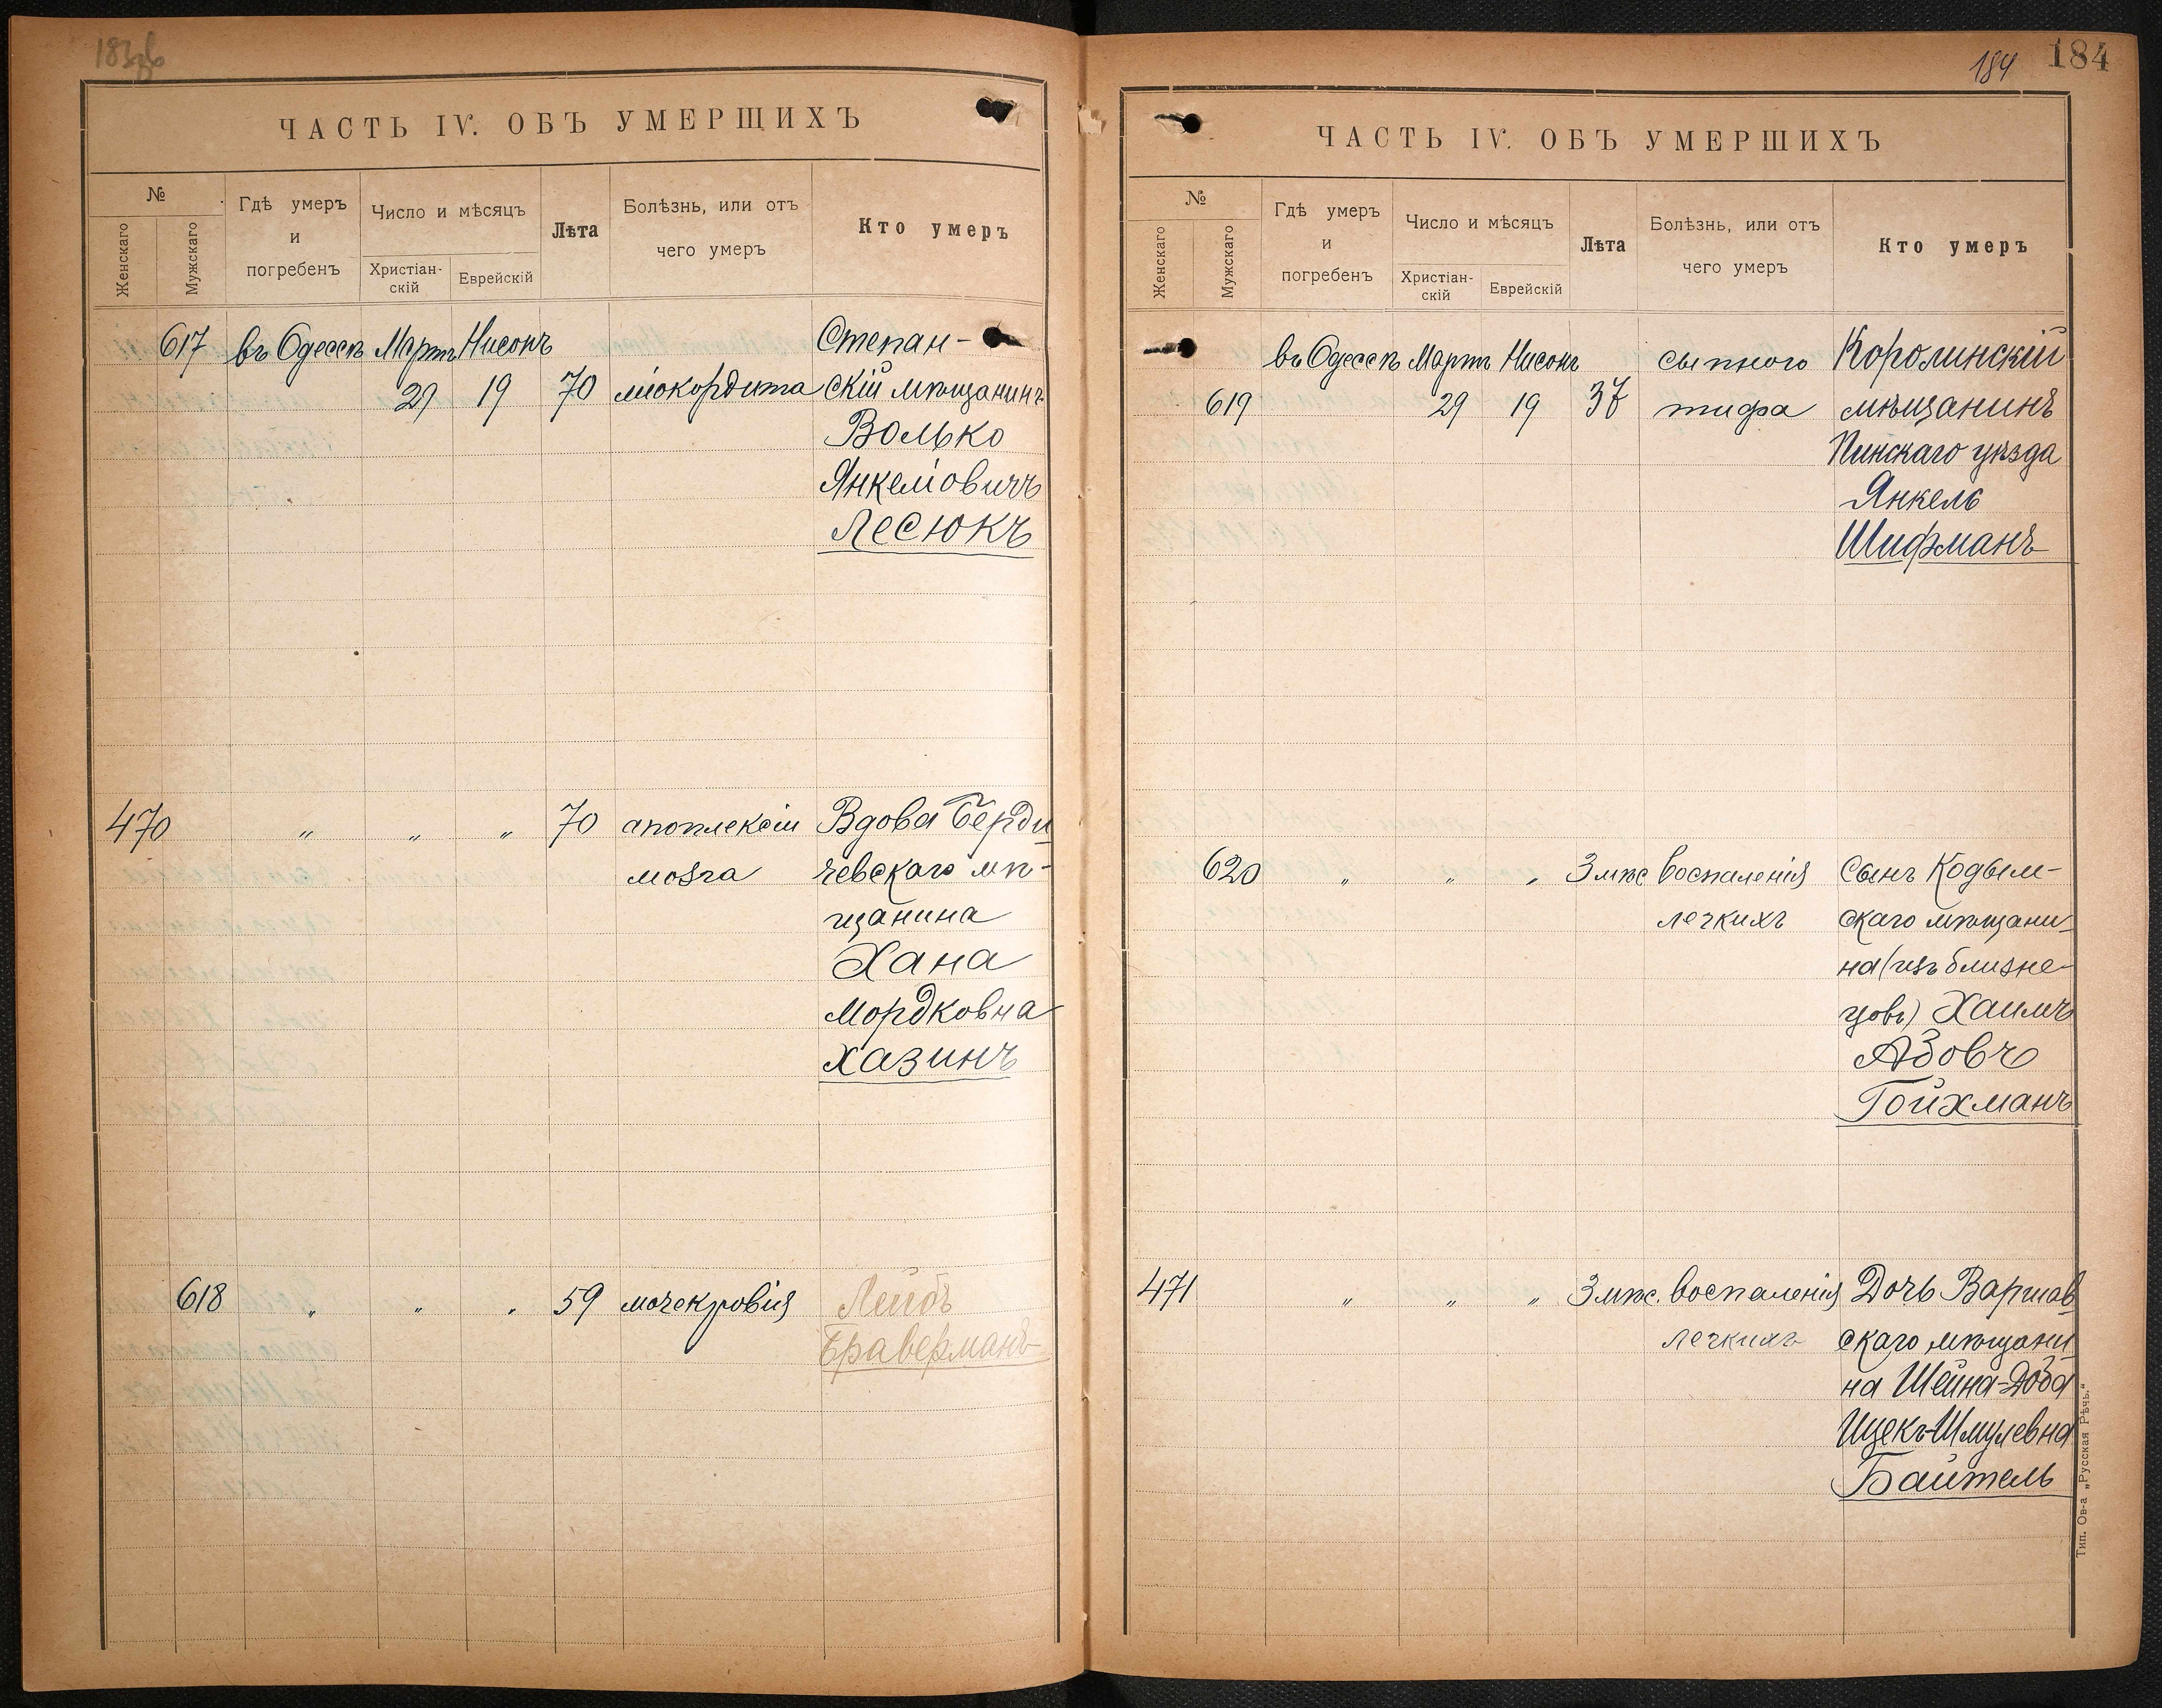 183об
ЧАСТЬ IV. ОБЪ УМЕРШИХЪ
№
Женскаго
Мужскаго
Гдѣ умеръ
и
погребенъ
Число и мѣсяцъ
Христіан-
скій
Еврейскій
Лѣта
Болѣзнь, или отъ
чего умеръ
Кто умеръ
617 въ Одессѣ Мартъ Нисонъ Степан-
29 19 70 міокордита скій мѣщанинъ
Волько
Янкеліовичъ
Лесюкъ
470 „ „ „ 70 апоплексіи Вдова Берди
мозга чевскаго мѣ-
щанина
Хана
Мордковна
Хазинъ
618 „ „ „ 59 мочекровія Лейбъ
Браверманъ
184 184
ЧАСТЬ IV. ОБЪ УМЕРШИХЪ
№
Женскаго
Мужскаго
Гдѣ умеръ
и
погребенъ
Число и мѣсяцъ
Христіан-
скій
Еврейскій
Лѣта
Болѣзнь, или отъ
чего умеръ
Кто умеръ
въ Одессѣ Мартъ Нисонъ сыпного Королинскій
619 29 19 37 тифа мѣщанинъ
Пинскаго уѣзда
Янкель
Шифманъ
620 „ „ „ 3 мѣс воспаленія Сынъ Кодым-
легкихъ скаго мѣщани-
на (изъ близне-
цовъ) Хаимъ
Азовъ
Гойхманъ
471 „ „ „ 3 мѣс. воспаленія Дочь Варшав
легкихъ скаго мѣщани
на Шейна-Доба
Ицекъ-Шмулевна
Байтель
Тип. Ов-а „Русская Рѣчь.“